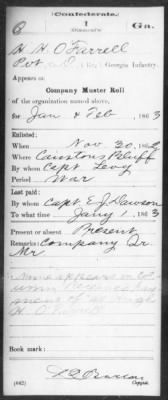 Confederate.
1 Ga.
H H O'Farrell
Pvt Co. D, 1 Reg't Georgia Infantry.
Appears on
Company Muster Roll
of the organization named above,
for Jan & Feb, 1863
Enlisted:
When Nov 30, 186
Where Caustons Bluff
By whom Capt Levy
Period War
Last paid:
By whom Capt E. J. Dawson
To what time Jany 1, 1863
Present or absent Present
Remarks: Company Qr
Mr
Name appears in
column
ment of as
H. O'Farrell
Book mark:
(642)
Copyist.